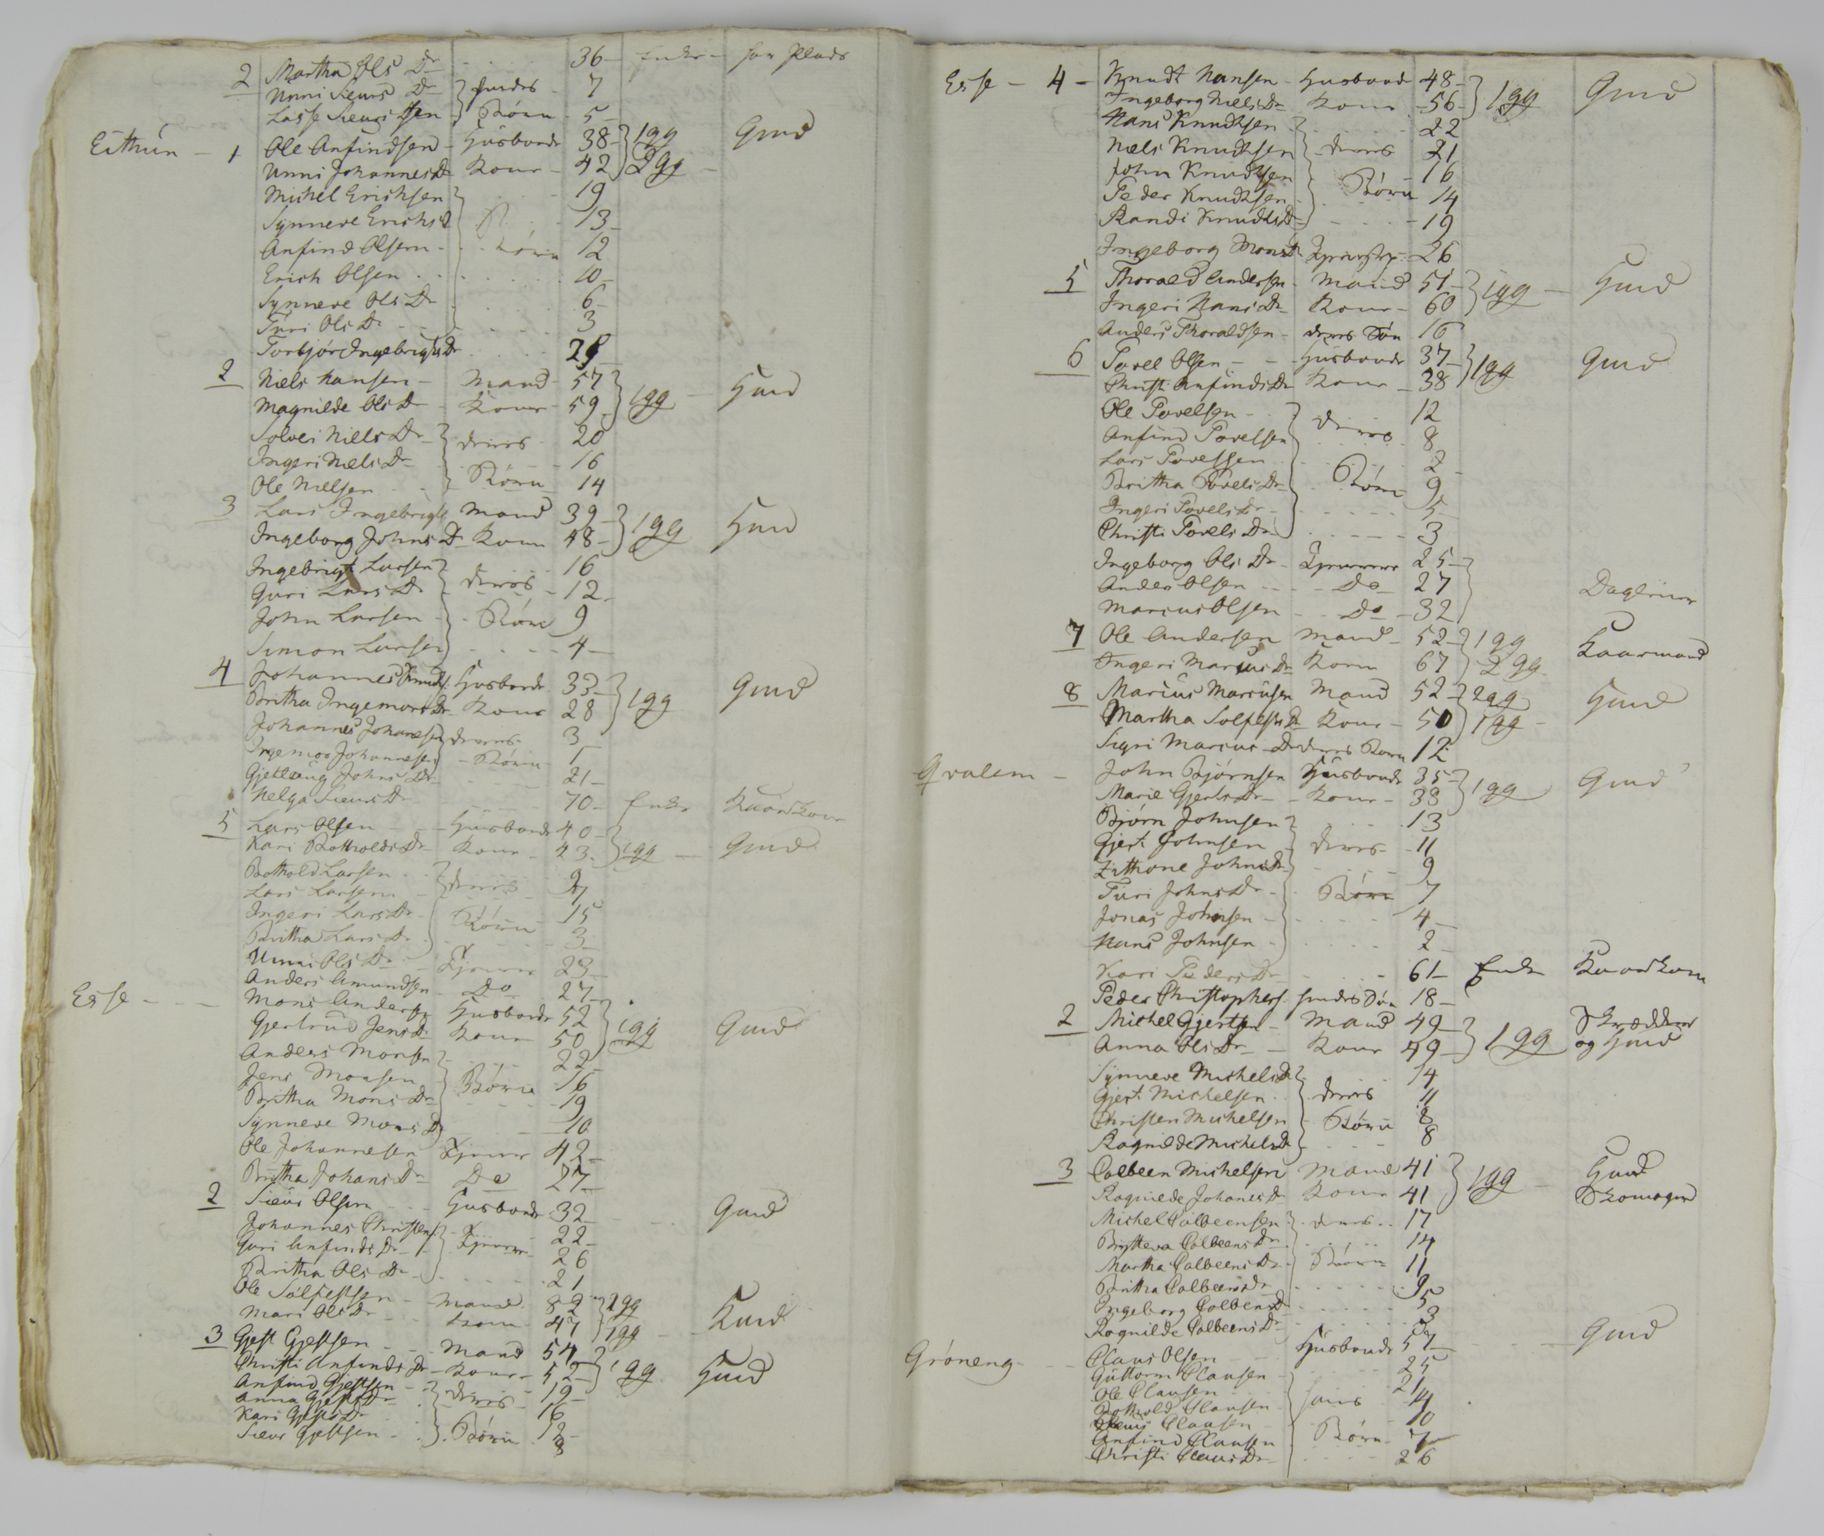 2 Martha Ols Dr - 36 - Enke - har Plads
Unni Siews Dr } hendes 7
Lasse Siewsen } Børn - 5
Eithun - 1 Ole Anfindsen - Husbonde 38 } 1 gg Gmd
Unni Johannes Dr Kone - 42 } 2 gg -
Michel Erichsen 19
Synneve Erichs D 13
Anfind Olsen - Børn 12
Erich Olsen 10
Synneve Ols Dr 6
Turi Ols Dr 3
Torbjør Ingebrigts Dr
2 Niels Hansen - Mand - 57 } 1 gg - Hmd
Magnilde Ols Dr - Kone - 59
Solvei Niels Dr } deres 20
Ingeri Niels Dr 16
Ole Nielsen } Børn 14
3 Lars Ingebrigts Mand 39 } 1 gg Hmd
Ingeborg Johns Dr Kone 48
Ingebrigt Larsen 16
Guri Lars Dr } deres - 12
John Larsen - Børn 9
Simon Larsen 4
4 Johannes Knuds. Husbonde 33 } 1 gg Gmd
Britha Ingemors Dr Kone 28
Johannes Johannesen deres 3
Ingemor Johannesen - Børn 1
Gjetlaug Johns Dr 21
Helga Siews Dr 70 - Enke
5 Lars Olsen - Husbonde 40 } 1 gg - Gmd
Kari Botholds Dr Kone - 43
Bothold Larsen } deres 9
Lars Larsen 7
Ingeri Lars Dr Børn 15
Britha Lars Dr 3
Unni Ols Dr - Tjener 23
Anders Amundsen Do 27
Esse - Mons Andersen Husbonde 52 } 1 gg Gmd
Gjertrud Jens Dr Kone 50
Anders Monsen 22
Jens Monsen } Børn 16
Britha Mons Dr 19
Synneve Mons Dr 10
Ole Johannesen Tjener 42
Britha Johans Dr Do 27
2 Siewr Olsen Husbonde 32 Gmd
Johannes Christens. 22
Guri Anfinds Dr } Tjener 26
Britha Ols Dr 21
Ole Solfestsen - Mand 82 } 2 gg Hmd
Mari Ols Dr Kone 47 } 1 gg
3 Gjest Gjestsen Mand 54 } 1 gg Hmd
Christi Anfinds Dr - Kone - 52
Anfind Gjestsen } deres 19
Anna Gjests Dr 16
Kari Gjests Dr } Børn 12
Siewr Gjestsen 8
Esse - 4 - Knudt Hansen - Husbond 48 } 1 gg Gmd
Ingeborg Niels Dr Kone 56
Hans Knudtsen 22
Niels Knudtsen } deres 21
John Knudtsen 16
Peder Knudtsen Børn 14
Randi Knudts Dr 19
Ingeborg Mons Dr 26
5 Thorald Andersen Mand 51 } 1 gg - Hmd
Ingeri Hans Dr Kone - 60
Anders Thoraldsen - deres Søn 16
6 Povel Olsen - Husbonde 37 } 1 gg Gmd
Christi Anfinds Dr Kone - 38
Ole Povelsen - 12
Anfind Povelsen } deres 8
Lars Povelsen 2
Britha Povels Dr } Børn 9
Ingeri Povels Dr 5
Christi Povels Dr 3
Ingeborg Ols Dr Tjenere 25
Anders Olsen - Do 27 Daglejer
Marcus Olsen - Do - 32
7 Ole Andersen Mand - 52 } 1 gg Kaarmand
Ingeri Marcus Dr Kone 67 } 2 gg
8 Marcus Marcusen Mand 52 } 2 gg Hmd
Martha Solfests Dr Kone - 50 } 1 gg
Sigri Marcus Dr deres Barn 12
Qvalem - John Bjørnsen Husbonde 35 } 1 gg Gmd
Marie Gjerts Dr - Kone - 33
Bjørn Johnsen 13
Gjert Johnsen } deres 11
Zithone Johns Dr 9
Turi Johns Dr } Børn 7
Jonas Johnsen 4
Hans Johnsen 2
Kari Peders Dr 61 Enke Kaarkone
Peder Christophers. hendes Søn 18
2 Michel Gjertsen - Mand 49 } 1 gg Skrædder
Anna Ols Dr - Kone 49 og Hmd
Synneve Michels Dr 14
Gjert Michelsen } deres 11
Christen Michelsen } Børn 8
Ragnilde Michels Dr 8
3 Colbeen Michelsen Mand 41 } 1 gg Hmd
Ragnilde Johanes Dr Kone 41 Skomager
Michel Colbeensen } deres 17
Brytteva Colbeens Dr 14
Martha Colbeens Dr } Børn 11
Britha Colbeens Dr 9
Ingeborg Colbens Dr 5
Ragnilde Colbeens Dr 3
Grøneng - Claus Olsen Husbonde 57 Gmd
Guttorm Clausen 25
Ole Clausen } hans 21
Bothold Clausen 14
Clausen 10
Anfind Clausen } Børn 7
Christi Claus Dr 26